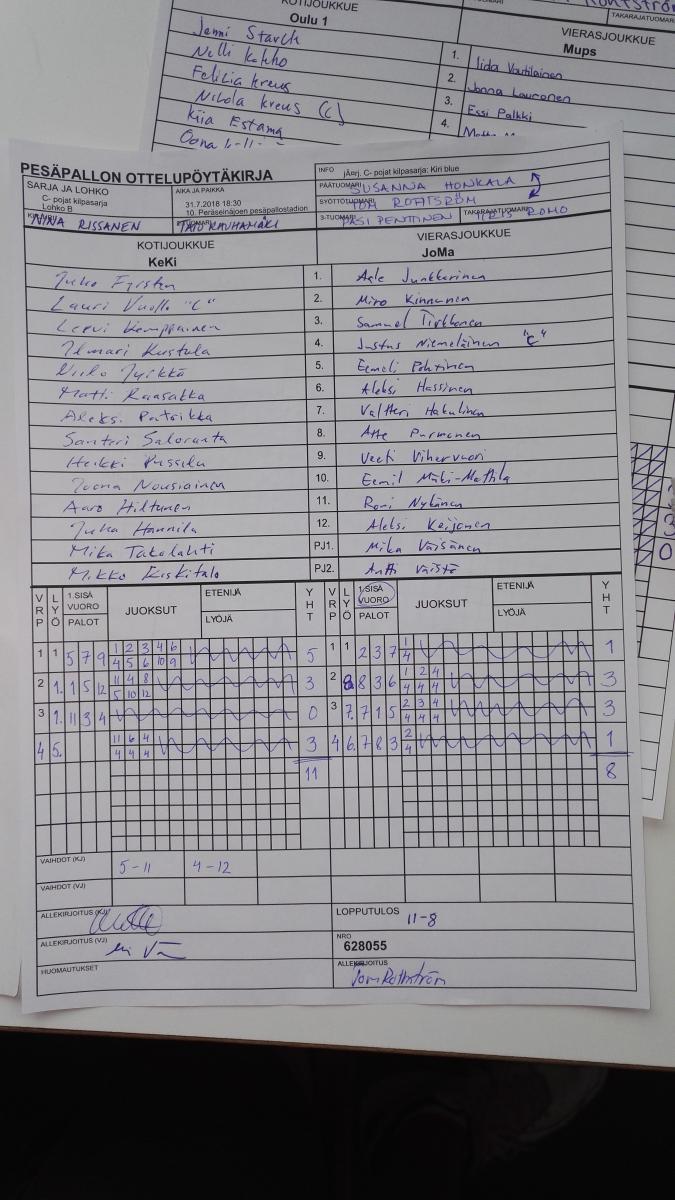 KOTIJOUKKUE
Oulu 1
TAKARAJATUOMARI
VIERASJOUKKUE
Mups
Jenni Starck
Nelli
Felicia kreus
Nikola kreus (C)
Kiia Estama
Oona
1. Iida Voutilainen
2. Jonna Lauronen
3. Essi Palkki
4.
PESÄPALLON OTTELUPÖYTÄKIRJA
INFO jÄerj. C- pojat kilpasarja: Kiri blue
SARJA JA LOHKO
C- pojat kilpasarja
Lohko B
AIKA JA PAIKKA
31.7.2018 18:30
10. Peräseinäjoen pesäpallostadion
PÄÄTUOMARI SUSANNA HONKALA
SYÖTTÖTUOMARI TOM ROHTSTRÖM
NINA RISSANEN
3-TUOMARI PASI PENTTINEN TAKARAJATUOMARI IIRIS ROMO
KOTIJOUKKUE VIERASJOUKKUE
KeKi JoMa
Juho Fyrsten 1. Junkkarinen
Lauri Vuolle "C" 2. Miro Kinnunen
Leevi Kemppainen 3. Samuel Tirkkonen
Ilmari Kustula 4. Justus Niemeläinen "C"
Niilo Jyikkä 5. Eemeli Pohtinen
Matti Raasakka 6. Aleksi Hassinen
Aleksi Patoikka 7. Valtteri Hakulinen
Santeri Saloranta 8. Atte Purmonen
Heikki Pussila 9. Veeti Vihervuori
Joona Nousiainen 10. Eemil Mäki-Mattila
Aaro Hiltunen 11. Roni Nykänen
Juha Hannila 12. Aleksi Keijonen
Mika Takolahti PJ1. Mika Väisänen
Mikko Kiskitalo PJ2. Antti Väistö
VRP LYÖ 1.SISÄ VUORO PALOT JUOKSUT ETENIJÄ LYÖJÄ YHT VRP LYÖ 1.SISÄ VUORO PALOT JUOKSUT ETENIJÄ LYÖJÄ YHT
1 1 5 7 9 1 2 3 4 6 5 1 1 2 3 7 1 1
4 5 6 10 9 4
2 1. 1 5 12 11 4 8 3 2 8 8 3 6 1 2 4 3
5 10 12 4 4 4
3 1. 11 3 4 0 3 7. 7 1 5 2 3 4 3
4 4 4
4 5. 11 6 4 3 4 6. 7 8 3 2 1
4 4 4 4
11 8
VAIHDOT (KJ) 5-11 4-12
VAIHDOT (VJ)
ALLEKIRJOITUS (KJ)
LOPPUTULOS 11-8
ALLEKIRJOITUS (VJ)
NRO
628055
HUOMAUTUKSET
ALLEKIRJOITUS
Tom Rothström